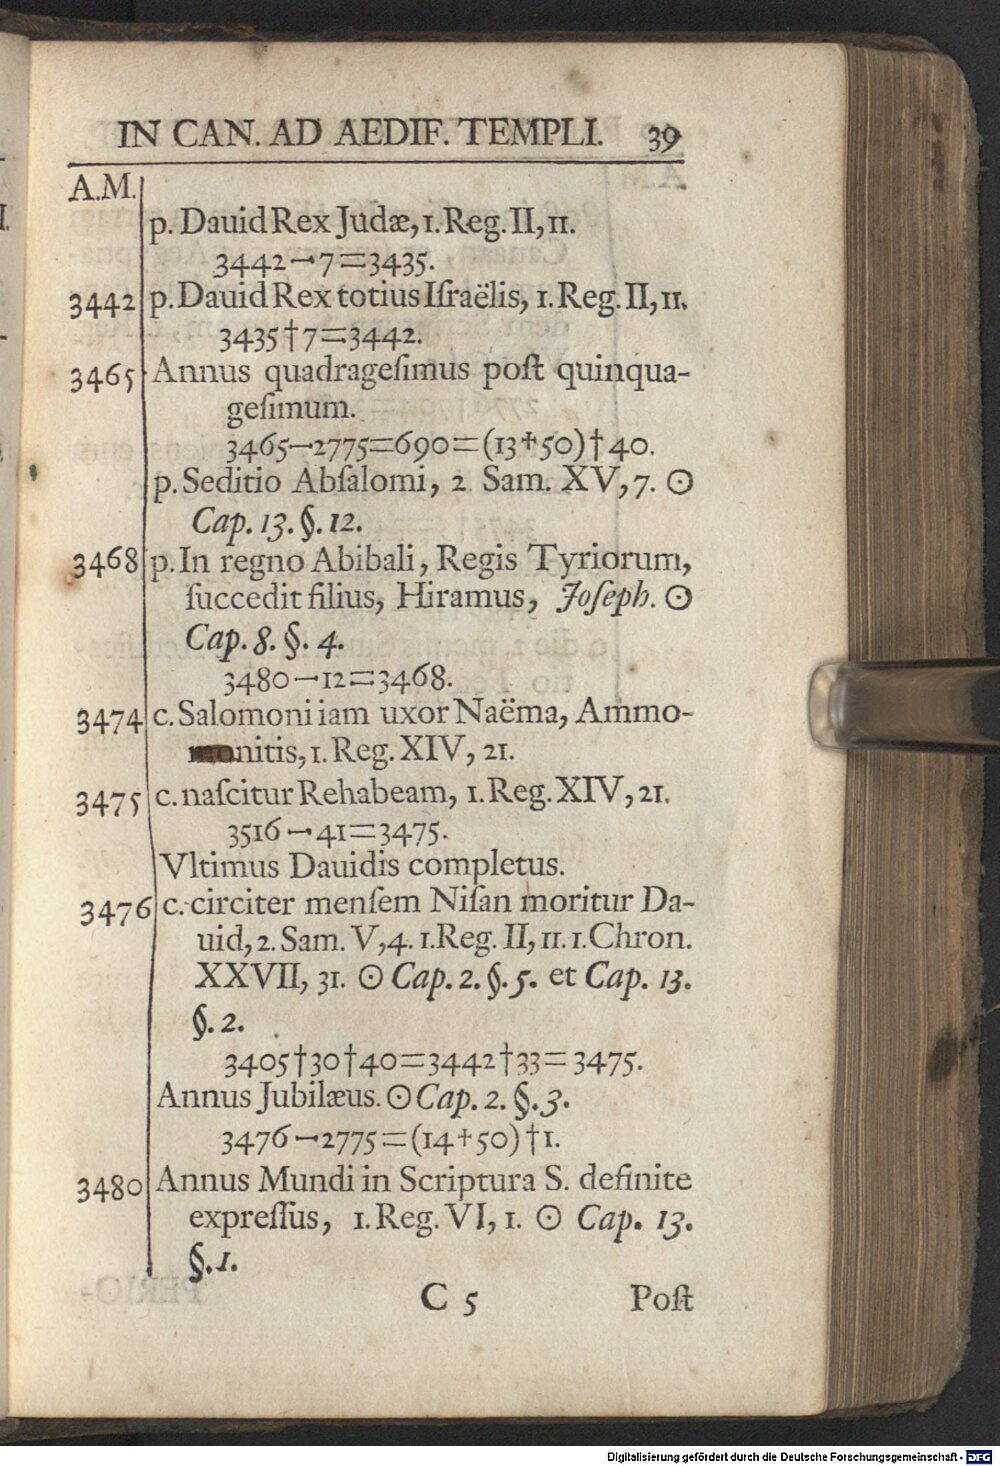 IN CAN. AD AEDIF. TEMPLI. 39
A.M.
p. Dauid Rex Judæ, 1. Reg. II, 11.
3442−7=3435.
3442 p. Dauid Rex totius Iſraëlis, 1. Reg. II, 11.
3435†7=3442.
3465 Annus quadrageſimus poſt quinqua-
geſimum.
3465−2775=690=(13+50)†40.
p. Seditio Abſalomi, 2 Sam. XV, 7. ☉
Cap. 13. §. 12.
3468 p. In regno Abibali, Regis Tyriorum,
ſuccedit filius, Hiramus, Joſeph. ☉
Cap. 8. §. 4.
3480−12=3468.
3474 c. Salomoni iam uxor Naëma, Ammo-
nitis, 1. Reg. XIV, 21.
3475 c. naſcitur Rehabeam, 1. Reg. XIV, 21.
3516−41=3475.
Vltimus Dauidis completus.
3476 c. circiter menſem Niſan moritur Da-
uid, 2. Sam. V, 4. 1. Reg. II, 11. 1. Chron.
XXVII, 31. ☉ Cap. 2. §. 5. et Cap. 13.
§. 2.
3405†30†40=3442†33=3475.
Annus Jubilæus. ☉ Cap. 2. §. 3.
3476−2775=(14+50)†1.
3480 Annus Mundi in Scriptura S. definite
expreſſus, 1. Reg. VI, 1. ☉ Cap. 13.
§. 1.
C 5 Poſt
Digitalisierung gefördert durch die Deutsche Forschungsgemeinschaft - DFG